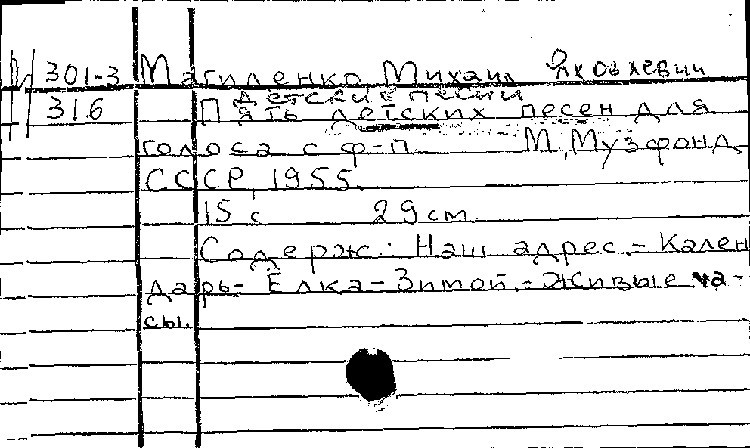 И 301-3 Магиленко Михаил Яковлевич
Детские песни
316 Пять детских песен для
голоса с ф-п. М., Музфонд
СССР, 1955.
15 с 29 см.
Содерж.: Наш адрес. - Кален
дарь - Ёлка - Зимой. - Живые ча-
сы.